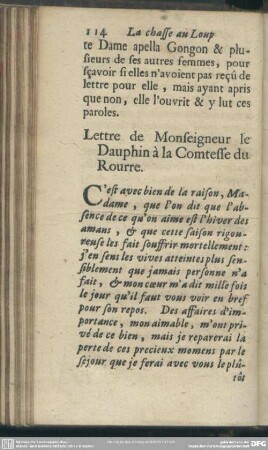 114 La chasse au Loup
te Dame apella Gongon & plu-
sieurs de ses autres femmes, pour
sçavoir si elles n'avoient pas reçû de
lettre pour elle, mais ayant apris
que non, elle l'ouvrit & y lut ces
paroles.
Lettre de Monseigneur le
Dauphin à la Comtesse du
Rourre.
C'est avec bien de la raison, Ma-
dame, que l'on dit que l'ab-
sence de ce qu'on aime est l'hiver des
amans, & que cette saison rigou-
reuse les fait souffrir mortellement:
j'en sens les vives atteintes plus sen-
siblement que jamais personne n'a
fait, & mon cœur m'a dit mille fois
le jour qu'il faut vous voir en bref
pour son repos. Des affaires d'im-
portance, mon aimable, m'ont pri-
vé de ce bien, mais je reparerai la
perte de ces precieux momens par le
séjour que je ferai avec vous le plû-
tôt